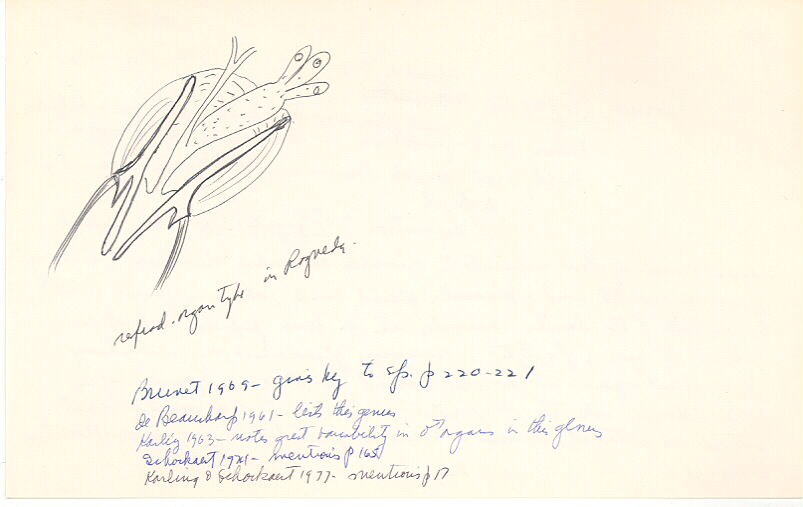 reprod. organ type in Rogneda.
Brunet 1969 - gives key to sp. p 220-221
de Beauchamp 1961 - lists this genus
Karling 1963 - notes great variability in ♂ organs in this genus
Schockaert 1971 - mentions p 165
Karling & Schockaert 1977 - mentions p 17